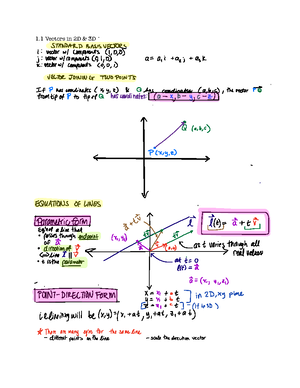 1.1 Vectors in 2D & 3D
STANDARD BASIS VECTORS
i: vector w/ components (1,0,0)
j: vector w/ components (0,1,0)
k: vector w/ components (0,0,1)
a = a₁i + a₂j + a₃k
VECTOR JOINING TWO POINTS
If P has coordinates (x,y,z) & Q has coordinates (a,b,c), the vector PQ
from tip of P to tip of Q has coordinates (a-x, b-y, c-z)
Q (a,b,c)
P(x,y,z)
EQUATIONS OF LINES
PARAMETRIC FORM
Eqn of a line that
passes through endpoint
of a
direction of
v
t is the parameter
l(t) = a + tv
as t varies through all
real values
at t = 0
l(t) = a
POINT-DIRECTION FORM
in 2D, xy plane
(if in 3D)
(x,y,z) = (x₁+at, y₁+bt, z₁+ct)
* There are many eqns for the same line
- different points in the line
- scale the direction vector